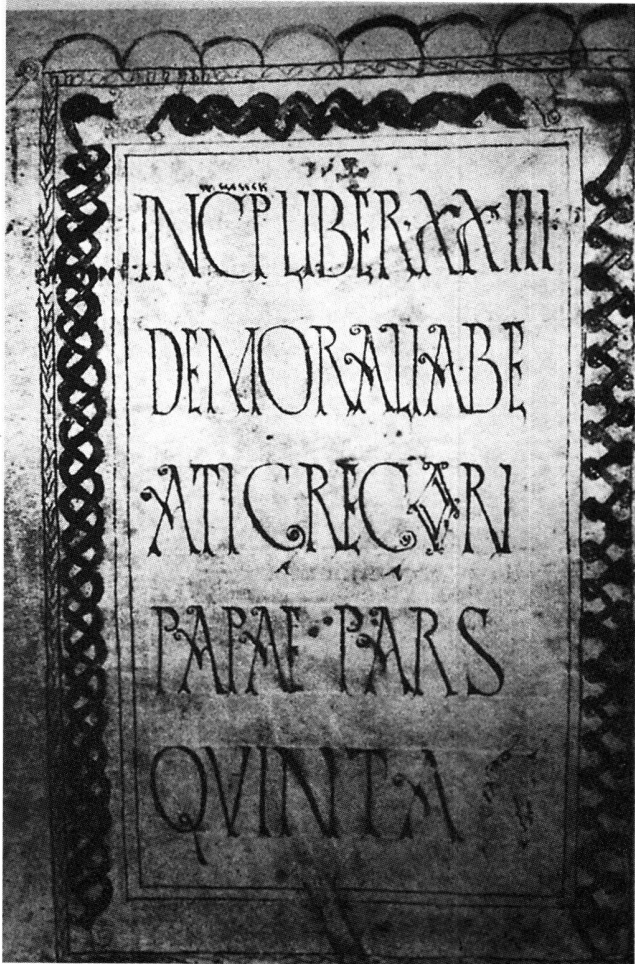 INCP LIBER XXIII
DE MORALIA BE
ATI GREGORI
PAPAE · PARS
QVINTA